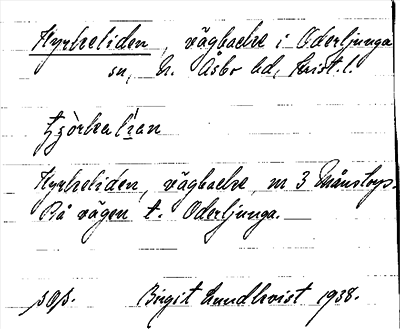 Kyrkeliden, vägbacke i Oderljunga
sn, N. Åsbo hd, Krist. l.
Kyrkeliden, vägbacke, m 3 Månstorp.
På vägen t. Oderljunga.
sds. Birgit Lundkvist 1938.